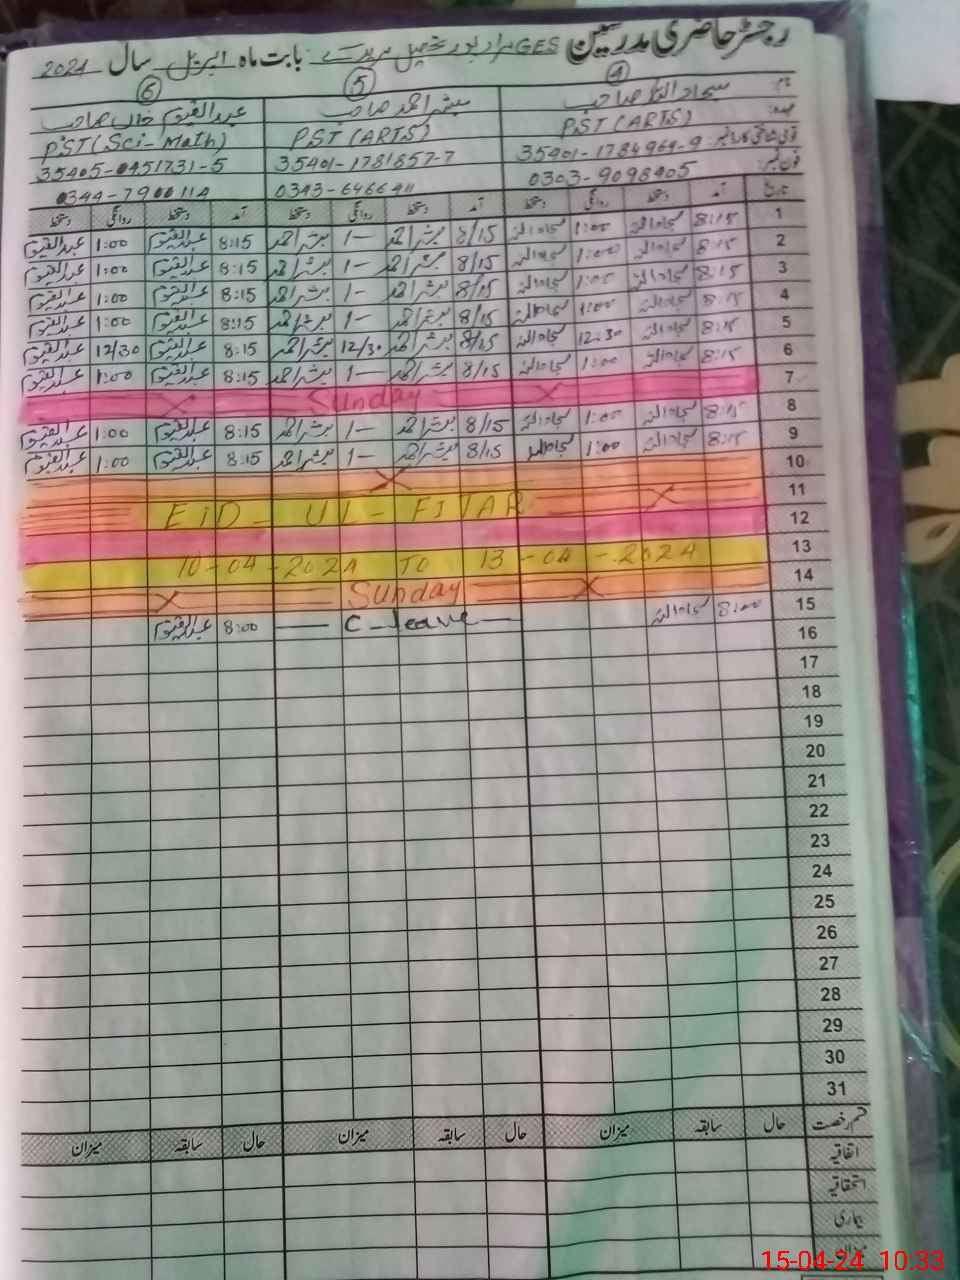 رجسٹر حاضری مدرسین GES مراد پور تحصیل مریدکے بابت ماہ اپریل سال 2024
④ ⑤ ⑥
نام سجاد اللہ صاحب مبشر احمد صاحب عبدالقیوم خاں صاحب
عہدہ PST (ARTS) PST (ARTS) PST (Sci-Math)
قومی شناختی کارڈ نمبر 35401-1784964-9 35401-1781857-7 35405-0451731-5
فون نمبر 0303-9098405 0343-6466411 0344-7900114
تاریخ آمد دستخط روانگی دستخط آمد دستخط روانگی دستخط آمد دستخط روانگی دستخط
1 8:15 سجاد اللہ 1:00 سجاد اللہ 8/15 مبشر احمد 1— مبشر احمد 8:15 عبدالقیوم 1:00 عبدالقیوم
2 8:15 سجاد اللہ 1:00 سجاد اللہ 8/15 مبشر احمد 1— مبشر احمد 8:15 عبدالقیوم 1:00 عبدالقیوم
3 8:15 سجاد اللہ 1:00 سجاد اللہ 8/15 مبشر احمد 1— مبشر احمد 8:15 عبدالقیوم 1:00 عبدالقیوم
4 8:15 سجاد اللہ 1:00 سجاد اللہ 8/15 مبشر احمد 1— مبشر احمد 8:15 عبدالقیوم 1:00 عبدالقیوم
5 8:15 سجاد اللہ 12:30 سجاد اللہ 8/15 مبشر احمد 12/30 مبشر احمد 8:15 عبدالقیوم 12/30 عبدالقیوم
6 8:15 سجاد اللہ 1:00 سجاد اللہ 8/15 مبشر احمد 1— مبشر احمد 8:15 عبدالقیوم 1:00 عبدالقیوم
7 Sunday
8 8:15 سجاد اللہ 1:00 سجاد اللہ 8/15 مبشر احمد 1— مبشر احمد 8:15 عبدالقیوم 1:00 عبدالقیوم
9 8:15 سجاد اللہ 1:00 سجاد اللہ 8/15 مبشر احمد 1— مبشر احمد 8:15 عبدالقیوم 1:00 عبدالقیوم
10
11 EID - UL - FITAR
12
13 10-04-2024 TO 13-04-2024
14 Sunday
15 8:00 سجاد اللہ C-leave 8:00 عبدالقیوم
16
17
18
19
20
21
22
23
24
25
26
27
28
29
30
31
قسم رخصت حال سابقہ میزان حال سابقہ میزان حال سابقہ میزان
اتفاقیہ
استحقاقیہ
بیماری
میزان
15-04-24 10:33